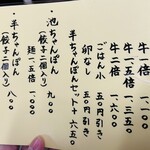 牛一倍 一、一〇〇
牛一、五倍 一、三五〇
牛二倍 一、六〇〇
ごはん小 五〇円引き
卵なし 五〇円引き
半ちゃんぽんセット＋六五〇
・池ちゃんぽん 九〇〇
(餃子二個入り)
麺一、五倍 一、〇〇〇
半ちゃんぽん 八〇〇
(餃子二個入り)